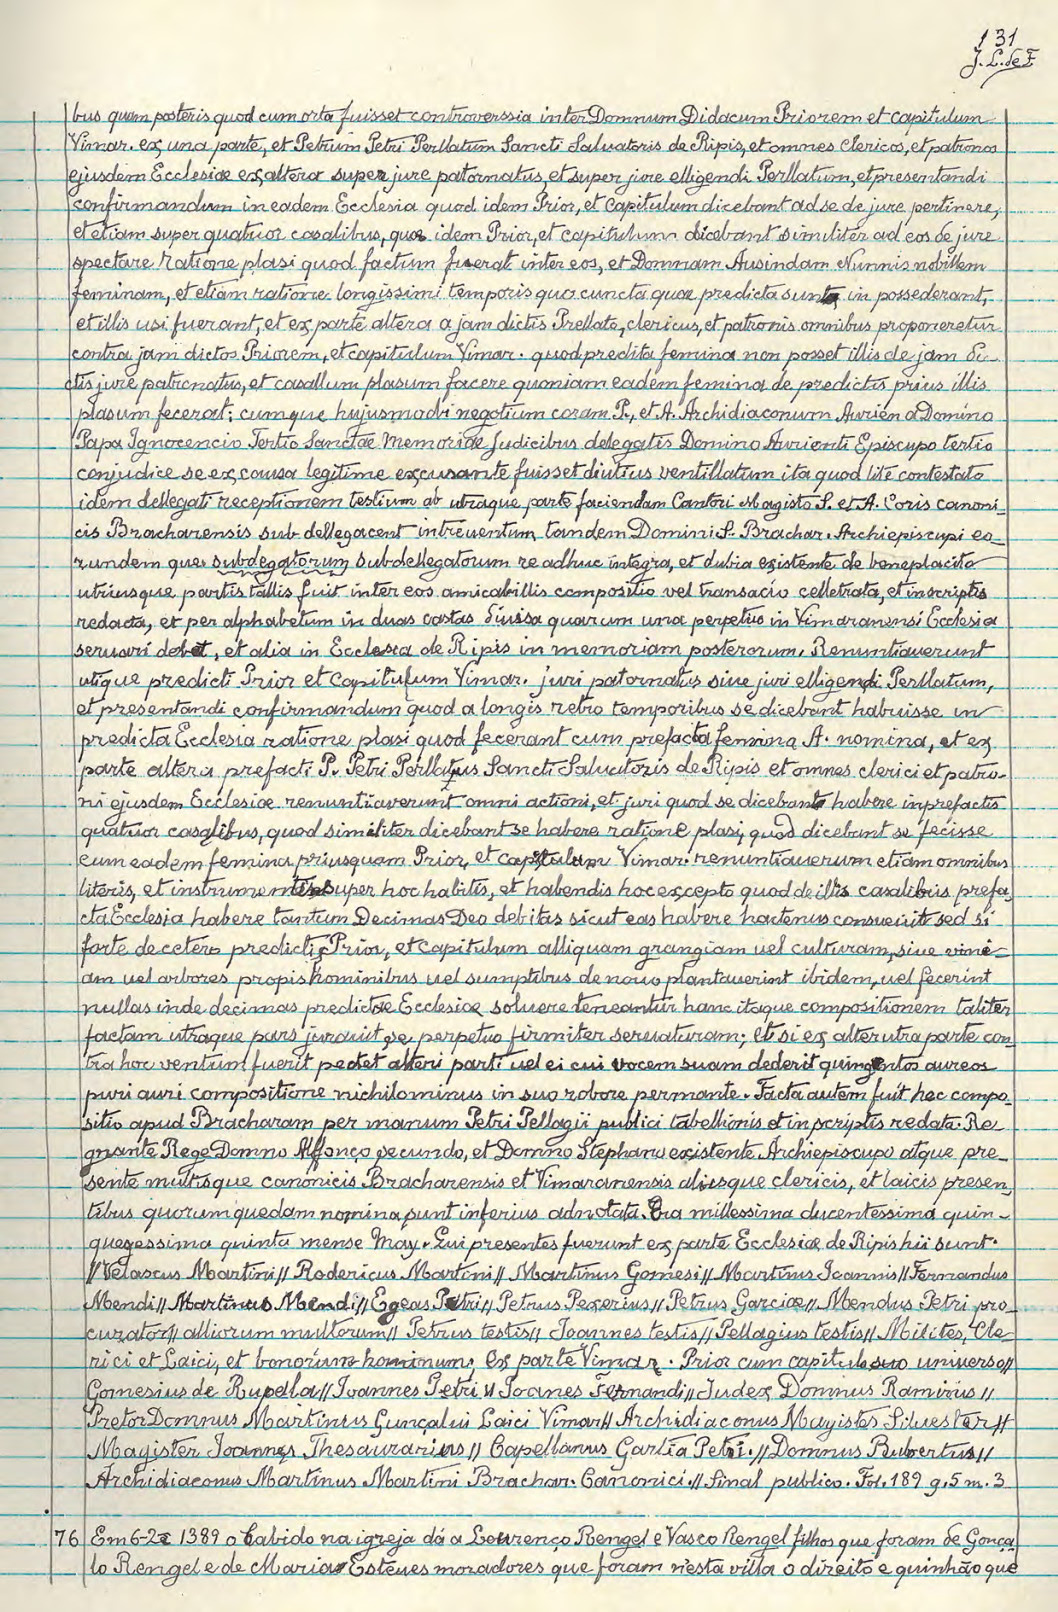 131
J. L. de F
bus quam posteris quod cum orta fuisset controverssia inter Domnum Didacum Priorem et capitulum
Vimar. ex una parte, et Petrum Petri Perllatum Sancti Salvatoris de Ripis, et omnes clericos, et patronos
ejusdem Ecclesiæ ex altera super jure patornatus, et super jure elligendi Perllatum, et presentandi
confirmandum in eadem Ecclesia quod idem Prior, et capitulum dicebant ad se de jure pertinere,
et etiam super quatuor casalibus, quos idem Prior, et capitulum dicebant similiter ad eos de jure
spectare ratione plasi quod factum fuerat inter eos, et Domnam Ausindam Nunnis nobillem
feminam, et etiam ratione longissimi temporis quo cuncta quæ predicta sunt in possederant,
et illis usi fuerant, et ex parte altera a jam dictis Prellato, clericus, et patronis omnibus proponeretur
contra jam dictos Priorem, et capitulum Vimar. quod predita femina non posset illis de jam di-
ctis jure patronatus, et casallum plasum facere quoniam eadem femina de predictis prius illis
plasum fecerat; cumque hujusmodi negotium coram P., et A. Archidiaconum Aurien a Domino
Papa Ignocencio Tertio Sanctæ Memoriæ Judicibus delegatis Domino Aurienti Episcupo tertio
conjudice se ex causa legitime excusante fuisset diutius ventillatum ita quod lite contestato
idem dellegati receptionem testium ab utraque parte faciendam Cantori Magisto S. et A. Coris canoni_
cis Bracharensis sub dellegacent intreuentum tandem Domini S. Brachar. Archiepiscupi eo_
rundem que subdegatorum subdellegatorum re adhuc integra, et dubia existente de beneplacito
utriusque partis tallis fuit inter eos amicabillis compositio vel transacio celletrata, et inscriptis
redacta, et per alphabetum in duas castas diuisa quarum una perpetuo in Vimaranensi Ecclesia
seruari debet, et alia in Ecclesia de Ripis in memoriam posterorum. Renuntiauerunt
utique predicti Prior et Capitulum Vimar. juri patornatus siue juri elligendi Perllatum,
et presentandi confirmandum quod a longis retro temporibus se dicebant habuisse in
predicta Ecclesia ratione plasi quod fecerant cum prefacta femina A. nomina, et ex
parte altera prefacti P. Petri Perllatus Sancti Saluatoris de Ripis et omnes clerici et patro-
ni ejusdem Ecclesiæ renuntiaverunt omni actioni, et juri quod se dicebant habere in prefactis
quatuor casalibus, quod similiter dicebant se habere ratione plasi, quod dicebant se fecisse
cum eadem femina, priusquam Prior, et capitulum Vimar. renuntiauerum etiam omnibus
literis, et instrumentis super hoc habitis, et habendis hoc excepto quod de illis casalibus prefa_
cta Ecclesia habere tantum Decimas Deo debitas sicut eas habere hactenus consueuit sed si
forte de cetero predictis Prior, et capitulum alliquam grangiam uel culturam, siue vine-
am uel arbores propis hominibus uel sumptibus de nouo plantauerint ibidem, uel fecerint
nullas inde decimas predictæ Ecclesiæ soluere teneantur hanc itaque compositionem taliter
factam utraque pars jurauit se perpetuo firmiter seruaturam; et si ex alterutra parte con_
tra hoc ventum fuerit pectet alteri parti uel ei cui vocem suam dederit quingentos aureos
puri auri compositione nichilominus in suo robore permante. Facta autem fuit hec compo_
sitio apud Bracharam per manum Petri Pellagii publici tabellionis et inscriptis redata. Re_
gnante Rege Domno Alffonço secundo, et Domno Stephano existente Archiepiscupo atque pre_
sente multisque canonicis Bracharensis et Vimaranensis aliisque clericis, et laicis presen_
tibus quorum quedam nomina sunt inferius adnotata. Era millessima ducentessima quin-
quegessima quinta mense May. Qui presentes fuerunt ex parte Ecclesiæ de Ripis hii sunt.
//Velascus Martini// Rodericus Martini// Martinus Gomesi// Martinus Joannis// Fernandus
Mendi// Martinus Mendi// Egeas Petri// Petrus Pexerius// Petrus Garciæ// Mendus Petri pro_
curator// alliorum multorum// Petrus testis// Joannes testis// Pellagius testis// Milites, Cle-
rici et Laici, et bonorum hominum; ex parte Vimar. Prior cum capitulo suo universo//
Gomesius de Rupella// Joannes Petri// Joanes Fernandi// Judex Domnus Ramirus//
Pretor Domnus Martinus Gunçalui Laici Vimar// Archidiaconus Magister Siluester//
Magister Joannes Thesaurarius// Capellanus Garcia Petri.// Domnus Rubertus//
Archidiaconus Martinus Martini Brachar. Canonici.// Sinal publico. Fol. 189 g. 5 m. 3
76 Em 6-2º 1389 o Cabido na igreja dá a Lourenço Rengel e Vasco Rengel filhos que foram de Gonça_
lo Rengel e de Maria Esteues moradores que foram nesta villa o direito e quinhão que